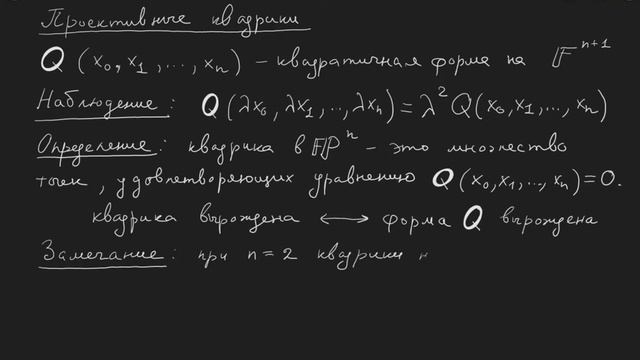 Проективные квадрики
Q (x₀, x₁, ..., xₙ) – квадратичная форма на 𝔽ⁿ⁺¹
Наблюдение: Q(λx₀, λx₁, .., λxₙ) = λ²Q(x₀, x₁, ..., xₙ)
Определение: квадрика в 𝔽ℙⁿ – это множество
точек, удовлетворяющих уравнению Q(x₀, x₁, ..., xₙ) = 0.
квадрика вырождена ⟷ форма Q вырождена
Замечание: при n = 2 квадрики